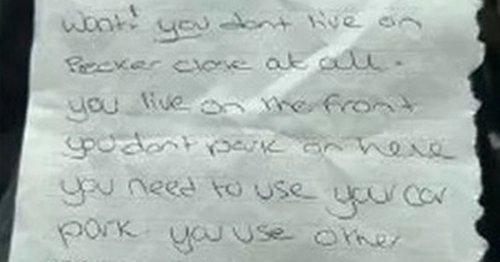 want! you dont live on
Becker close at all.
you live on the front
you dont park on here
you need to use your car
park you use other